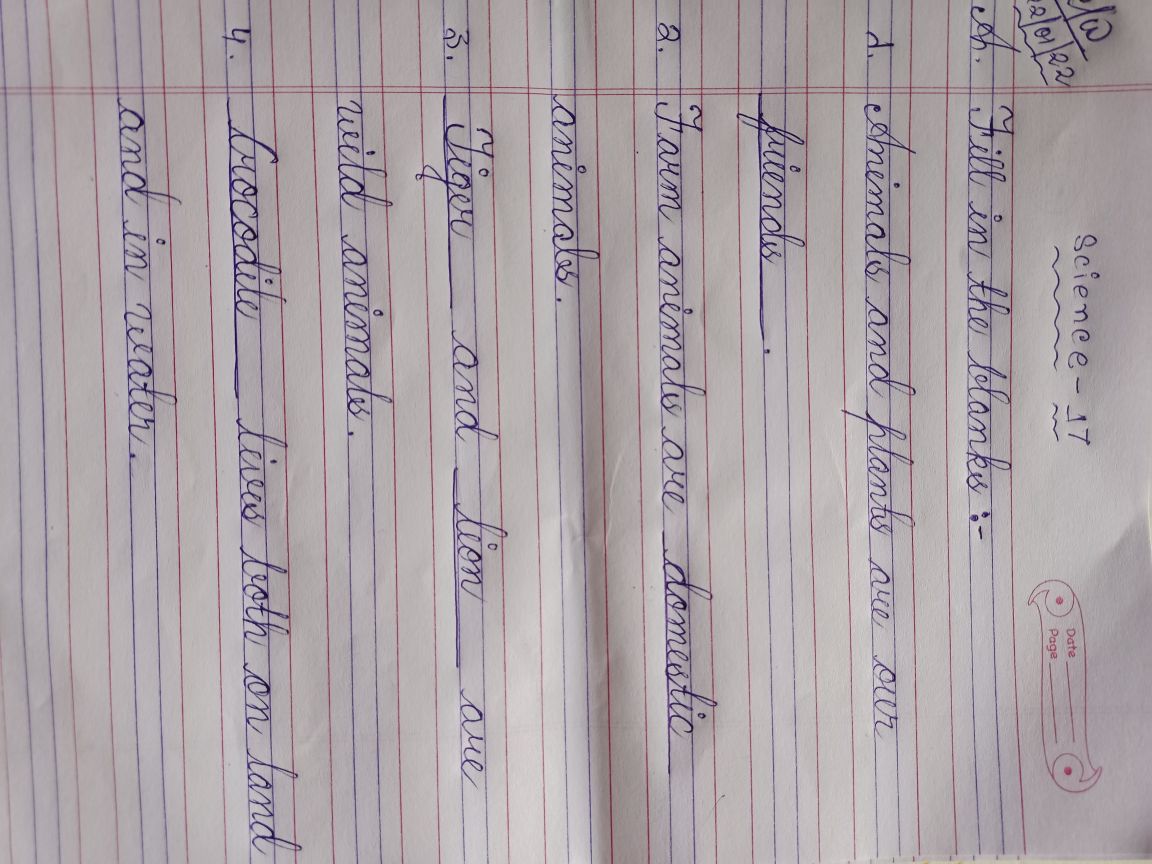 C/W
Science - 17
22/01/22
Date
Page
A. Fill in the blanks :-
1. Animals and plants are our
friends.
2. Farm animals are domestic
animals.
3. Tiger and lion are
wild animals.
4. Crocodile lives both on land
and in water.